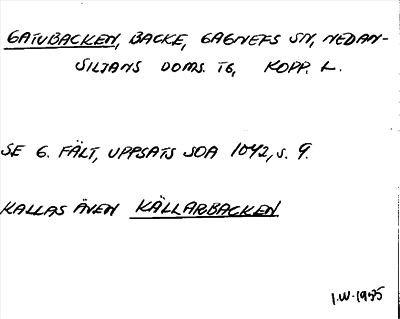 GATUBACKEN, BACKE, GAGNEFS SN, NEDAN-
SILJANS DOMS. TG, KOPP. L.
SE G. FÄLT, UPPSATS SOA 1042, s. 9.
KALLAS ÄVEN KÄLLARBACKEN
I.W. 1975